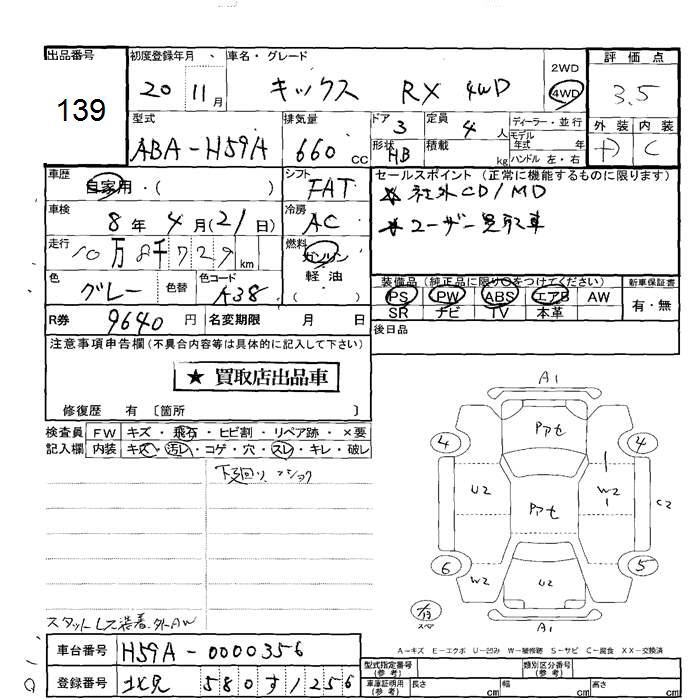 出品番号
139
初度登録年月
20 11月
車名・グレード
キックス RX 4WD
2WD
4WD
評価点
3.5
外装 内装
D C
型式
ABA-H59A
排気量
660 CC
ドア 3
形状 HB
定員 4 人
積載 kg
ディーラー・並行
モデル
年式 年
ハンドル 左・右
車歴
自家用・( )
シフト
FAT
セールスポイント (正常に機能するものに限ります)
★ 社外CD/MD
★ ユーザー買取車
車検
8年 4月(21日)
冷房
AC
走行
10万8千729km
燃料
ガソリン
軽・油
( )
色
グレー
色替
色コード
A38
装備品 (純正品に限り○をつけてください)
PS PW ABS エアB AW
SR ナビ TV 本革
新車保証書
有・無
R券 9640円
名変期限 月 日
後日品
注意事項申告欄 (不具合内容等は具体的に記入して下さい)
★ 買取店出品車
修復歴 有 〔箇所 〕
検査員
記入欄
FW キズ・飛石・ヒビ割・リペア跡・×要
内装 キズ・汚レ・コゲ・穴・スレ・キレ・破レ
下廻り
A1
Pアセ
4 4
U2 Pアセ W2 C2
6 5
W2 U2
A1
スタットレス装着.外AW
車台番号 H59A-0000356
登録番号 北見 580す1256
A-キズ E-エクボ U-凹み W-補修跡 S-サビ C-腐食 XX-交換済
型式指定番号
(参考)
類別区分番号
(参考)
車庫証明用
(参考)
長さ cm 幅 cm 高さ cm